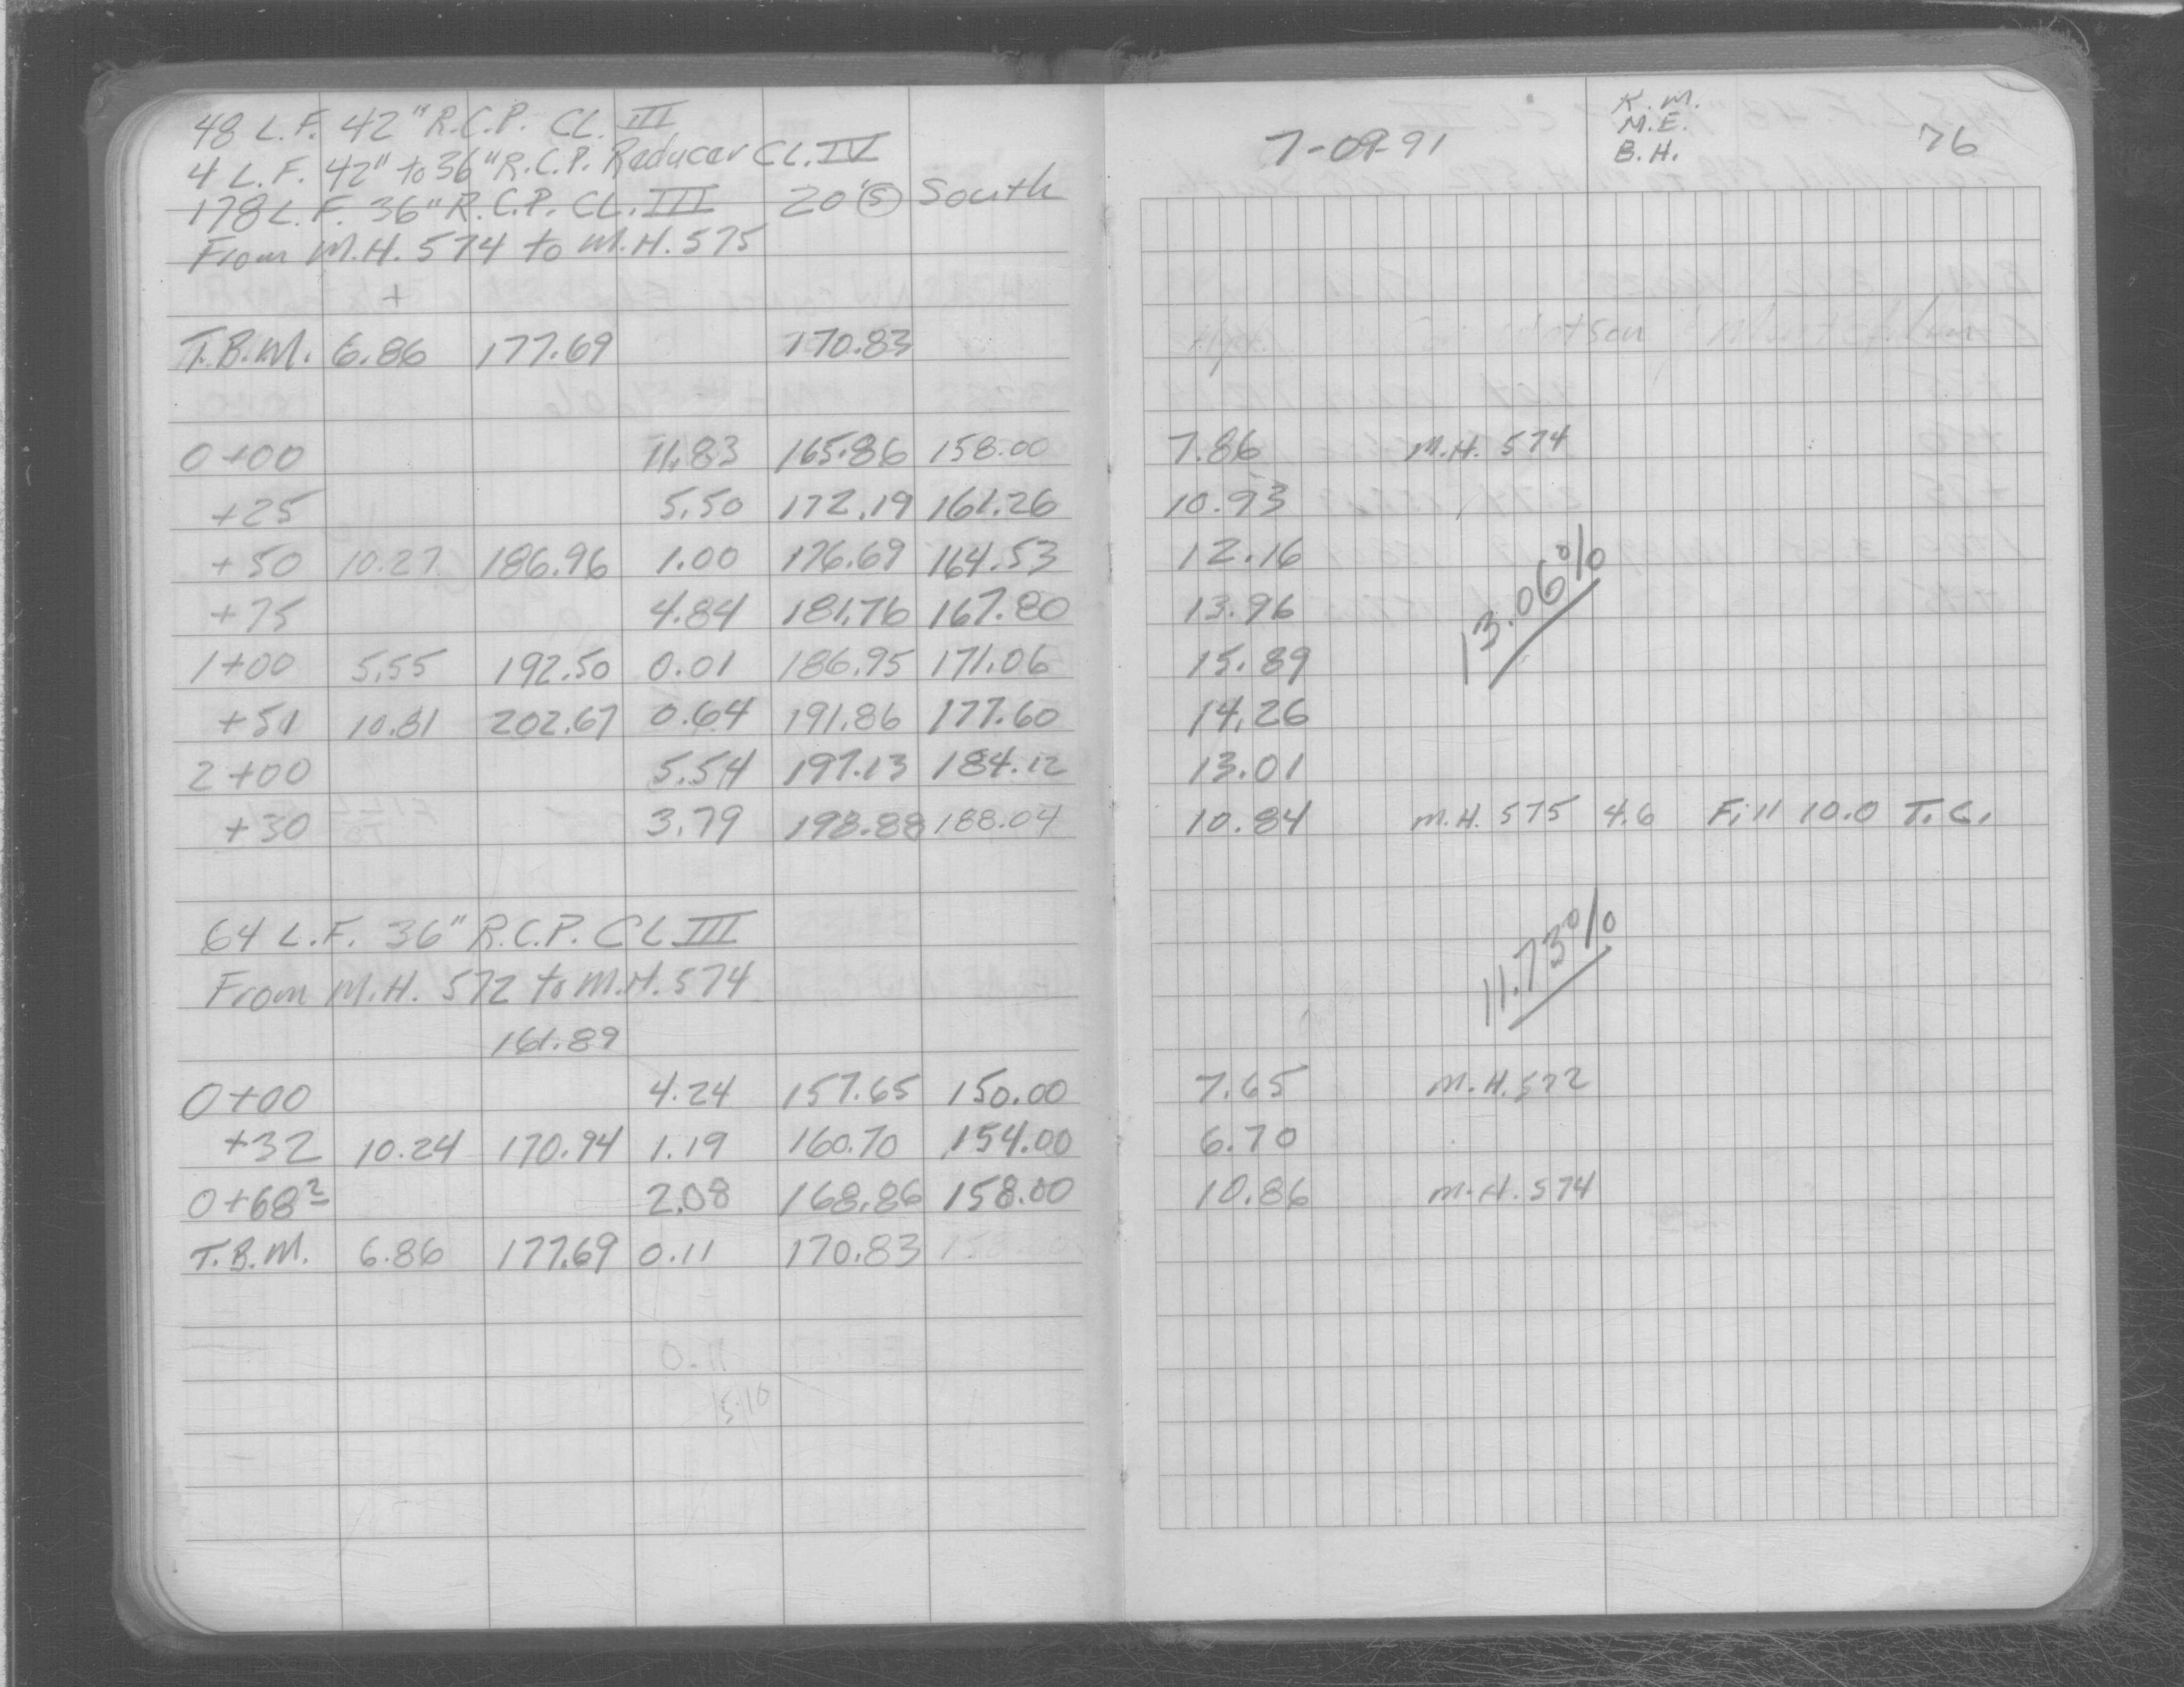 48 L.F. 42" R.C.P. CL. III
4 L.F. 42" to 36" R.C.P. Reducer CL. IV
178 L.F. 36" R.C.P. CL. III 20' Ⓢ South
From M.H. 574 to M.H. 575
+
T.B.M. 6.86 177.69 170.83
0+00 11.83 165.86 158.00
+25 5.50 172.19 161.26
+50 10.27 186.96 1.00 176.69 164.53
+75 4.84 181.76 167.80
1+00 5.55 192.50 0.01 186.95 171.06
+51 10.81 202.67 0.64 191.86 177.60
2+00 5.54 197.13 184.12
+30 3.79 198.88 188.04
64 L.F. 36" R.C.P. CL III
From M.H. 572 to M.H. 574
161.89
0+00 4.24 157.65 150.00
+32 10.24 170.94 1.19 160.70 154.00
0+68² 2.08 168.86 158.00
T.B.M. 6.86 177.69 0.11 170.83
0.11
7-09-91
K.M.
M.E.
B.H.
76
7.86 M.H. 574
10.93
12.16
13.96
13.06%
15.89
14.26
13.01
10.84 M.H. 575 4.6 Fill 10.0 T.C.
11.73%
7.65 M.H. 572
6.70
10.86 M.H. 574